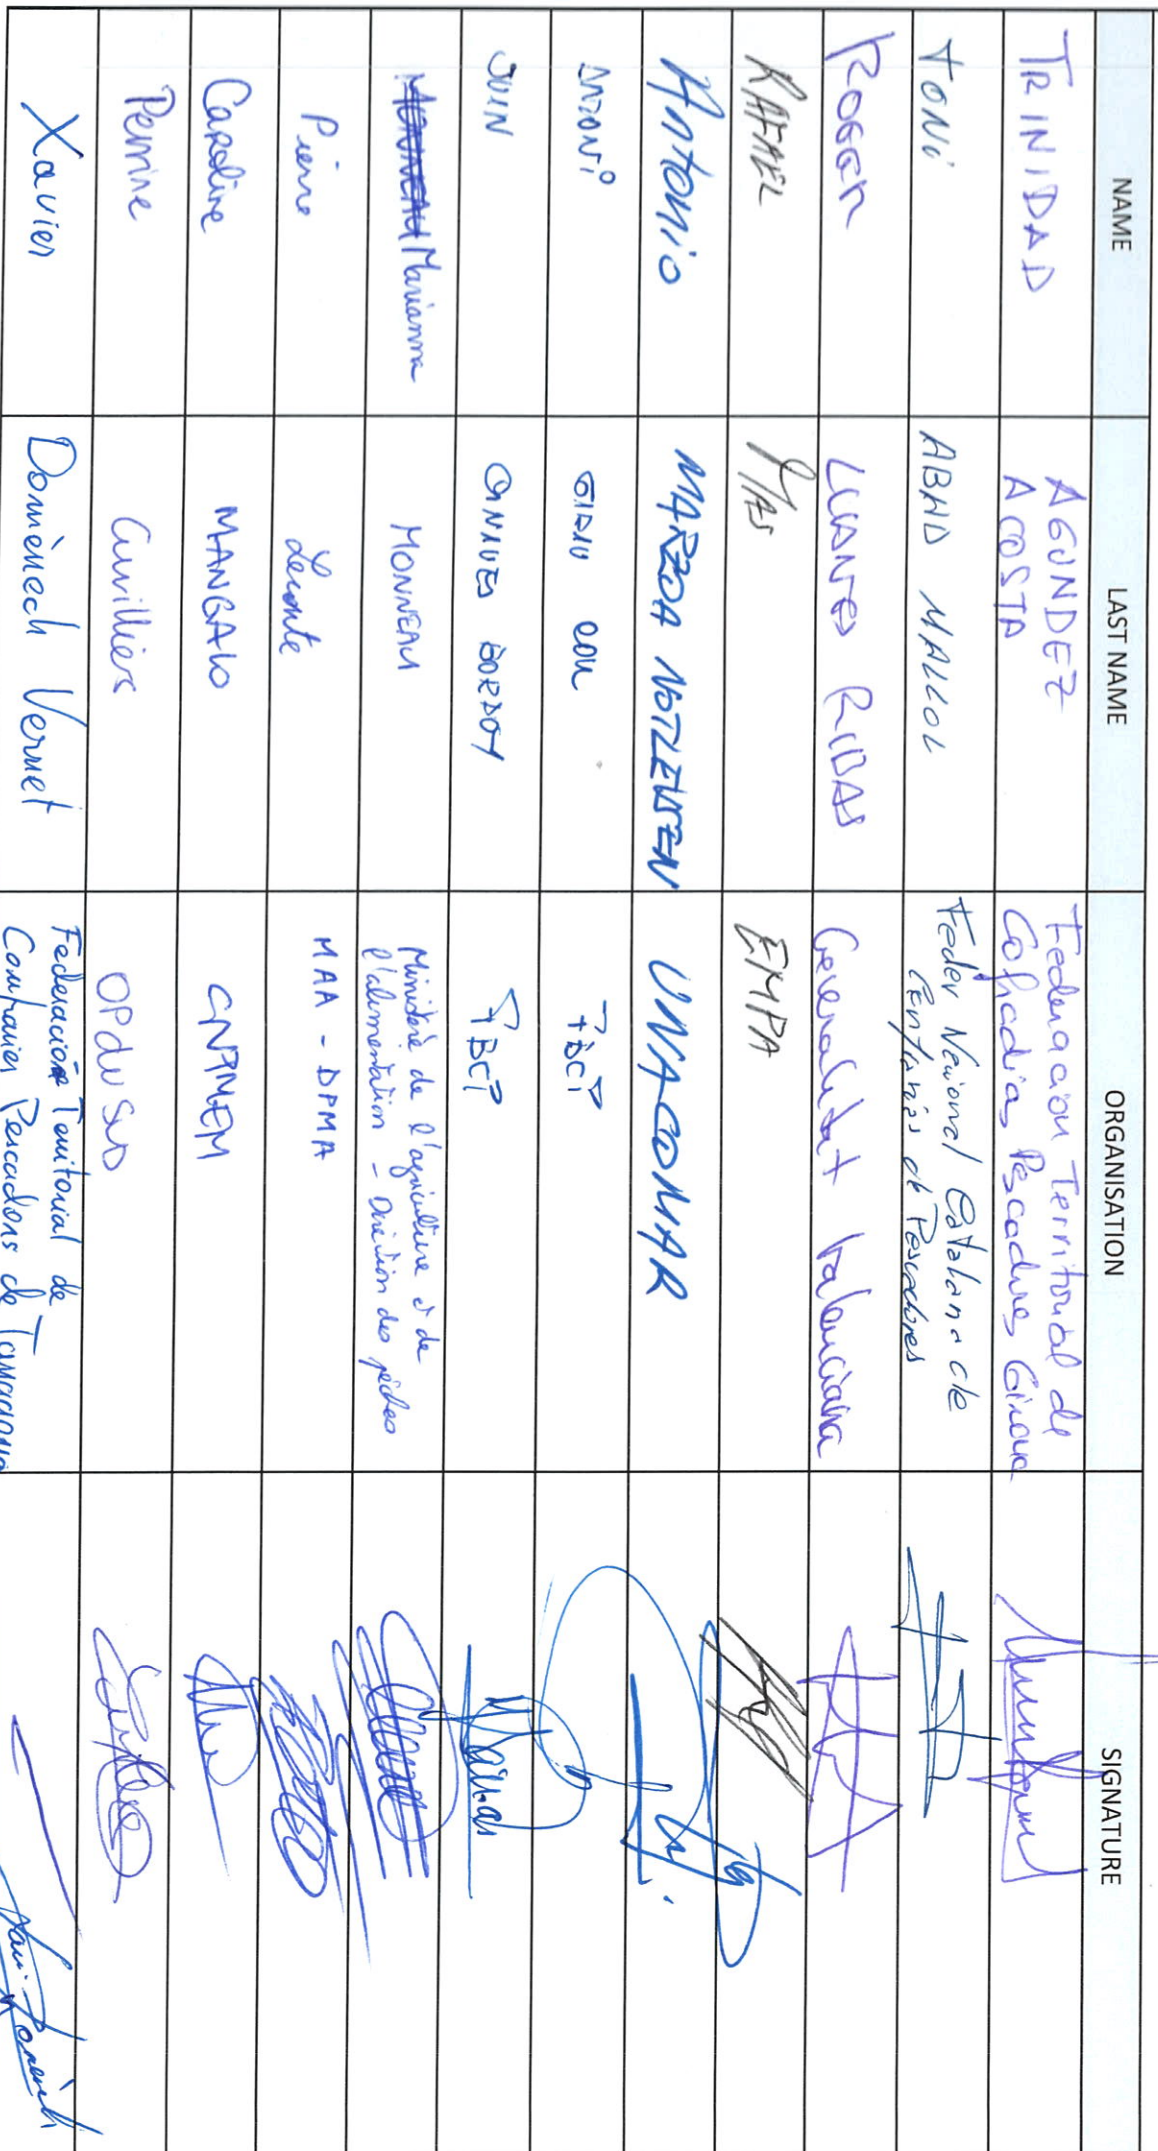 NAME LAST NAME ORGANISATION SIGNATURE
TRINIDAD AGUNDEZ ACOSTA Federacion Territorial de Cofradias Pescadores Girona
TONi ABAD MALLOL Feder Nacional Catalana de de Pescadores
ROGER LLANTES RIBAS Generalitat Valenciana
RAFAEL MAS EMPA
Antonio MARZOA NOTLEVSEN UNACOMAR
ANTONI FBCP
FBCP
Marianna MONNEAU Ministère de l'agriculture et de l'alimentation - Direction des pêches
Pierre Leconte MAA - DPMA
Caroline MANGALO CNPMEM
Perrine Cuvilliers OP du SUD
Xavier Domènech Vernet Federación Territorial de Confraries Pescadors de Tarragona